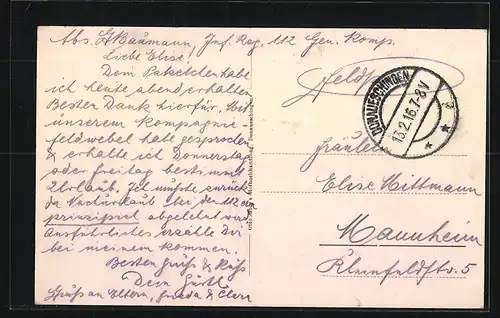 Abs. G. Baumann, Inf. Reg. 112 Gen. Komp.
Liebe Elise!
Dein Paketchen habe
ich heute abend erhalten
Besten Dank hierfür. Mit
unserem Kompagnie-
feldwebel habe gesprochen
& erhalte ich Donnerstag
oder Freitag bestimmt
Urlaub. Ich musste zurück
da bei der 112 ein
prinzipiel abgelehnt
Ausführliches erzähle Dir
bei meinem kommen.
Besten Gruss & Kuss
Dein
Gruss an Eltern, Frieda &
DONAUESCHINGEN
13.2.16.7-8V
Fräulein
Elise Mittmann
Mannheim
Kleinfeldstr. 5